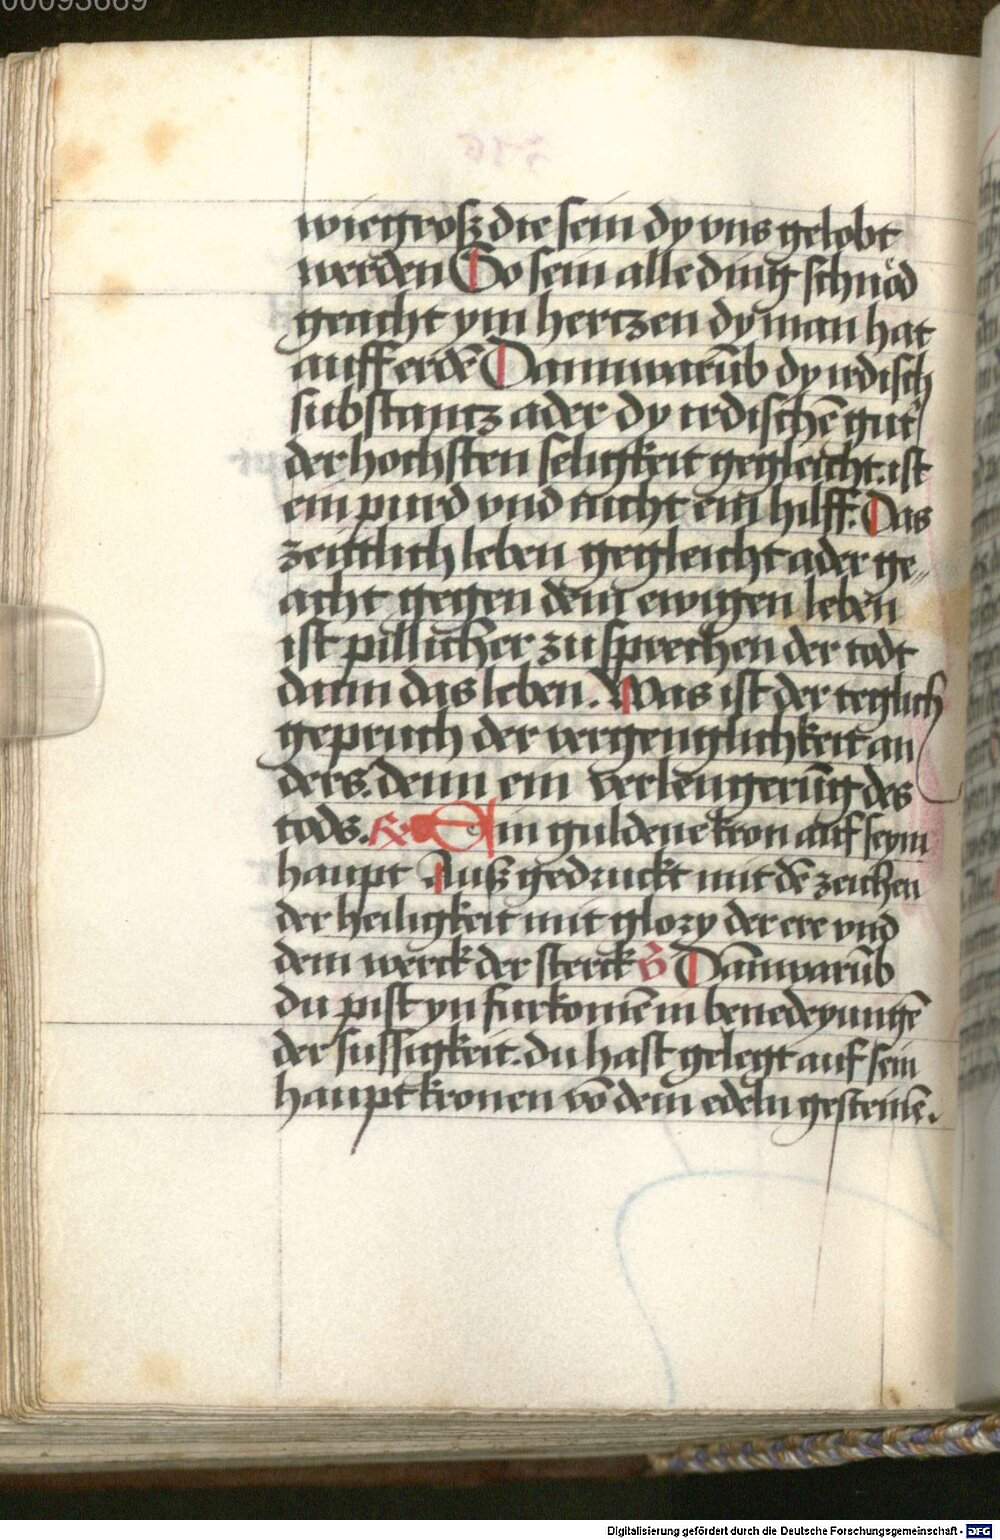 00093669
wie groß die sein dy vns gelobt
werden So sein alle ding schnöd
geacht ym hertzen dy man hat
auff erdē Dannwarūb dy irdisch
substantz ader dy irdischē gut
der hochsten seligkeit gegleicht. ist
ein purd vnd nicht ein hilff. Das
zeittlich leben gegleicht ader ge„
acht gegen dem ewigen leben
ist pillicher zu sprechen der todt
dann das leben. Was ist der teglich
gepruch der vergenglichkeit an
ders. denn ein verlengerūg des
tods. R Ein guldene kron auf seym
haupt Außgedruckt mit dē zeichen
der heiligkeit mit glory der ere vnd
dem werck der sterck v̄ Dānwarūb
du pist yn furkomē in benedeyungē
der sussigkeit. du hast gelegt auf sein
haupt kronen vō dem edeln gesteinē.
Digitalisierung gefördert durch die Deutsche Forschungsgemeinschaft - DFG